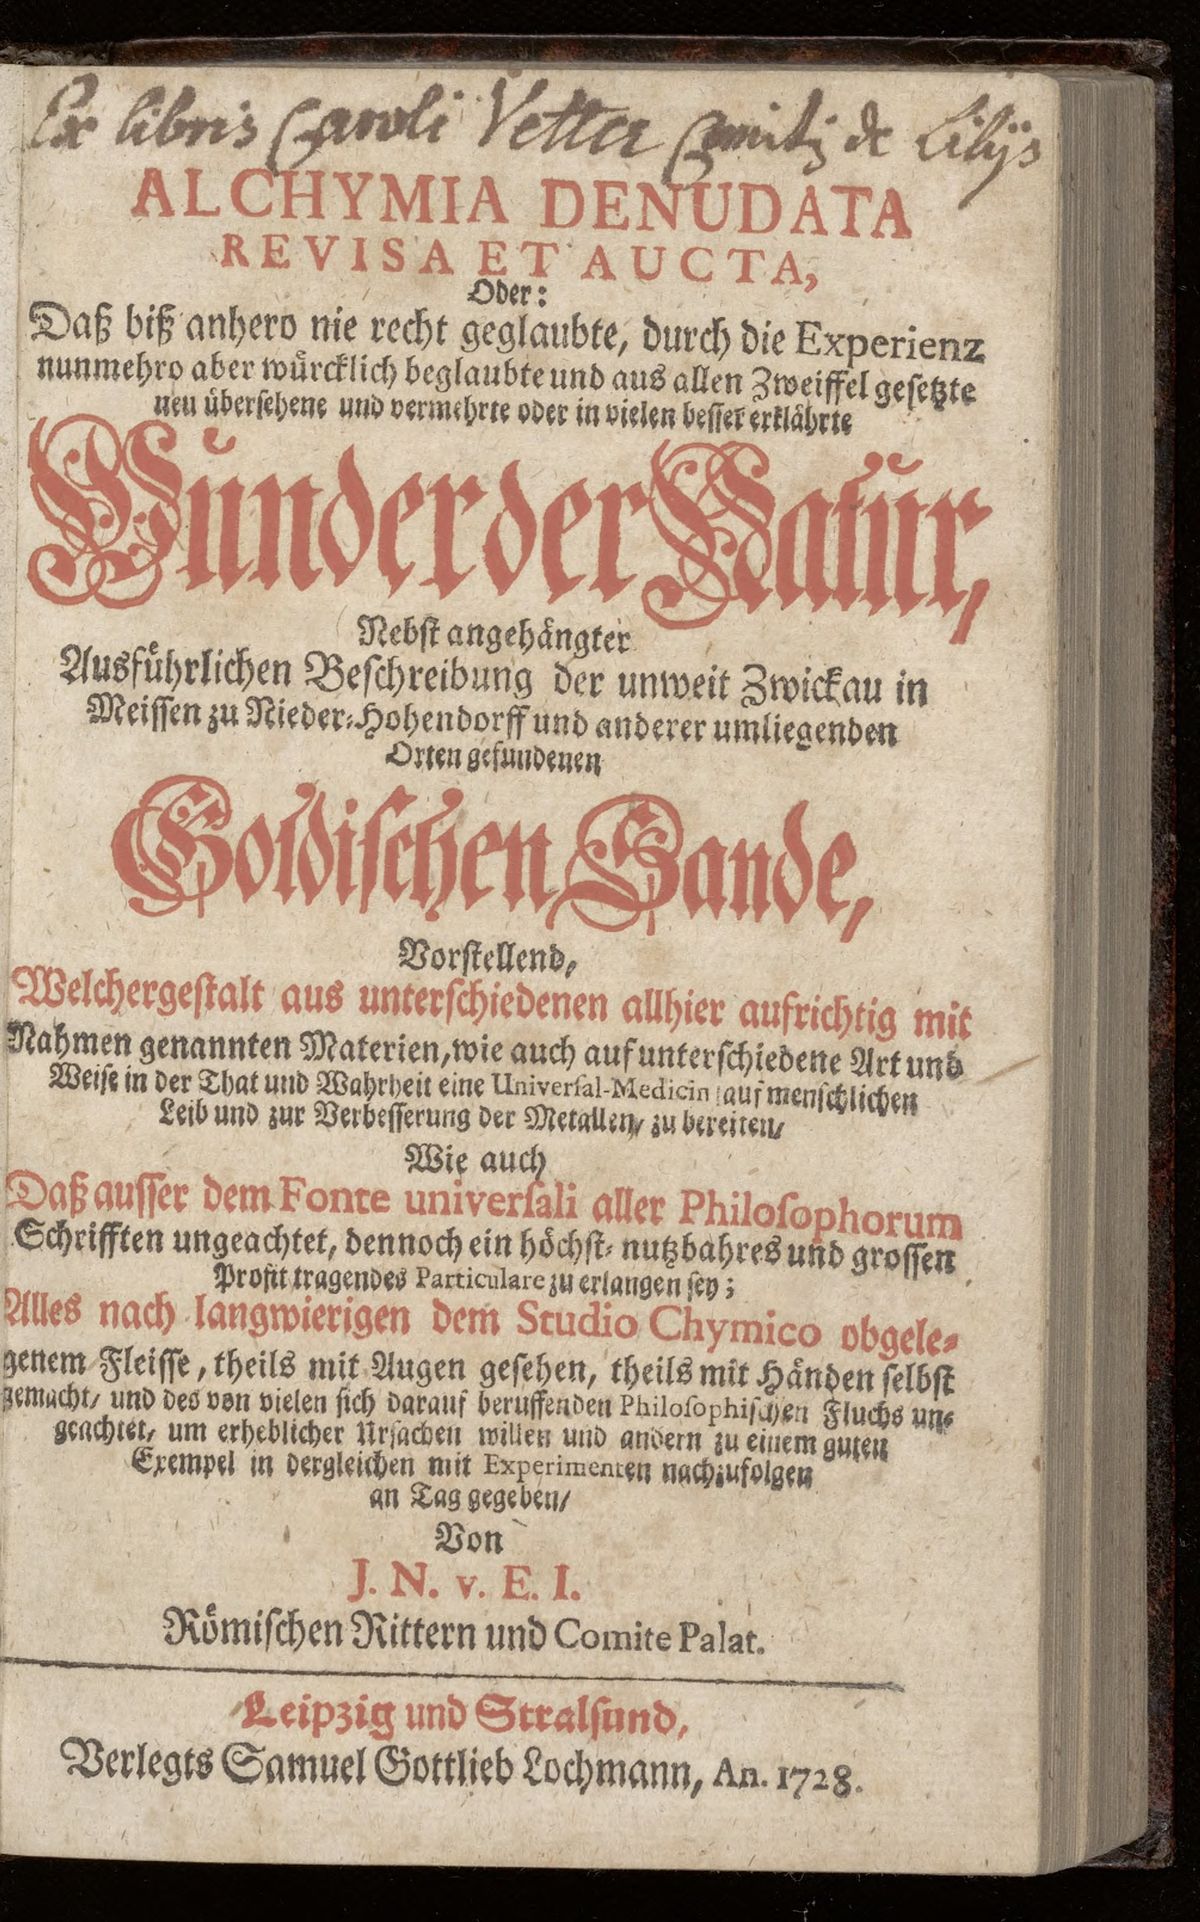 Ex libris Caroli Vetter Comitis de Lilijs
ALCHYMIA DENUDATA
REVISA ET AUCTA,
Oder:
Daß biß anhero nie recht geglaubte, durch die Experienz
nunmehro aber wuͤrcklich beglaubte und aus allen Zweiffel gesetzte
neu uͤbersehene und vermehrte oder in vielen besser erklaͤhrte
Wunder der Natur,
Nebst angehaͤngter
Ausfuͤhrlichen Beschreibung der unweit Zwickau in
Meissen zu Nieder-Hohendorff und anderer umliegenden
Orten gefundenen
Goldischen Sande,
Vorstellend,
Welchergestalt aus unterschiedenen allhier aufrichtig mit
Nahmen genannten Materien, wie auch auf unterschiedene Art und
Weise in der That und Wahrheit eine Universal-Medicin auf menschlichen
Leib und zur Verbesserung der Metallen/ zu bereiten/
Wie auch
Daß ausser dem Fonte universali aller Philosophorum
Schrifften ungeachtet, dennoch ein hoͤchst-nutzbahres und grossen
Profit tragendes Particulare zu erlangen sey;
Alles nach langwierigen dem Studio Chymico obgele-
genem Fleisse, theils mit Augen gesehen, theils mit Haͤnden selbst
gemacht/ und des von vielen sich darauf beruffenden Philosophischen Fluchs un-
geachtet, um erheblicher Ursachen willen und andern zu einem guten
Exempel in dergleichen mit Experimenten nachzufolgen
an Tag gegeben/
Von
J. N. v. E. I.
Roͤmischen Rittern und Comite Palat.
Leipzig und Stralsund,
Verlegts Samuel Gottlieb Lochmann, An. 1728.